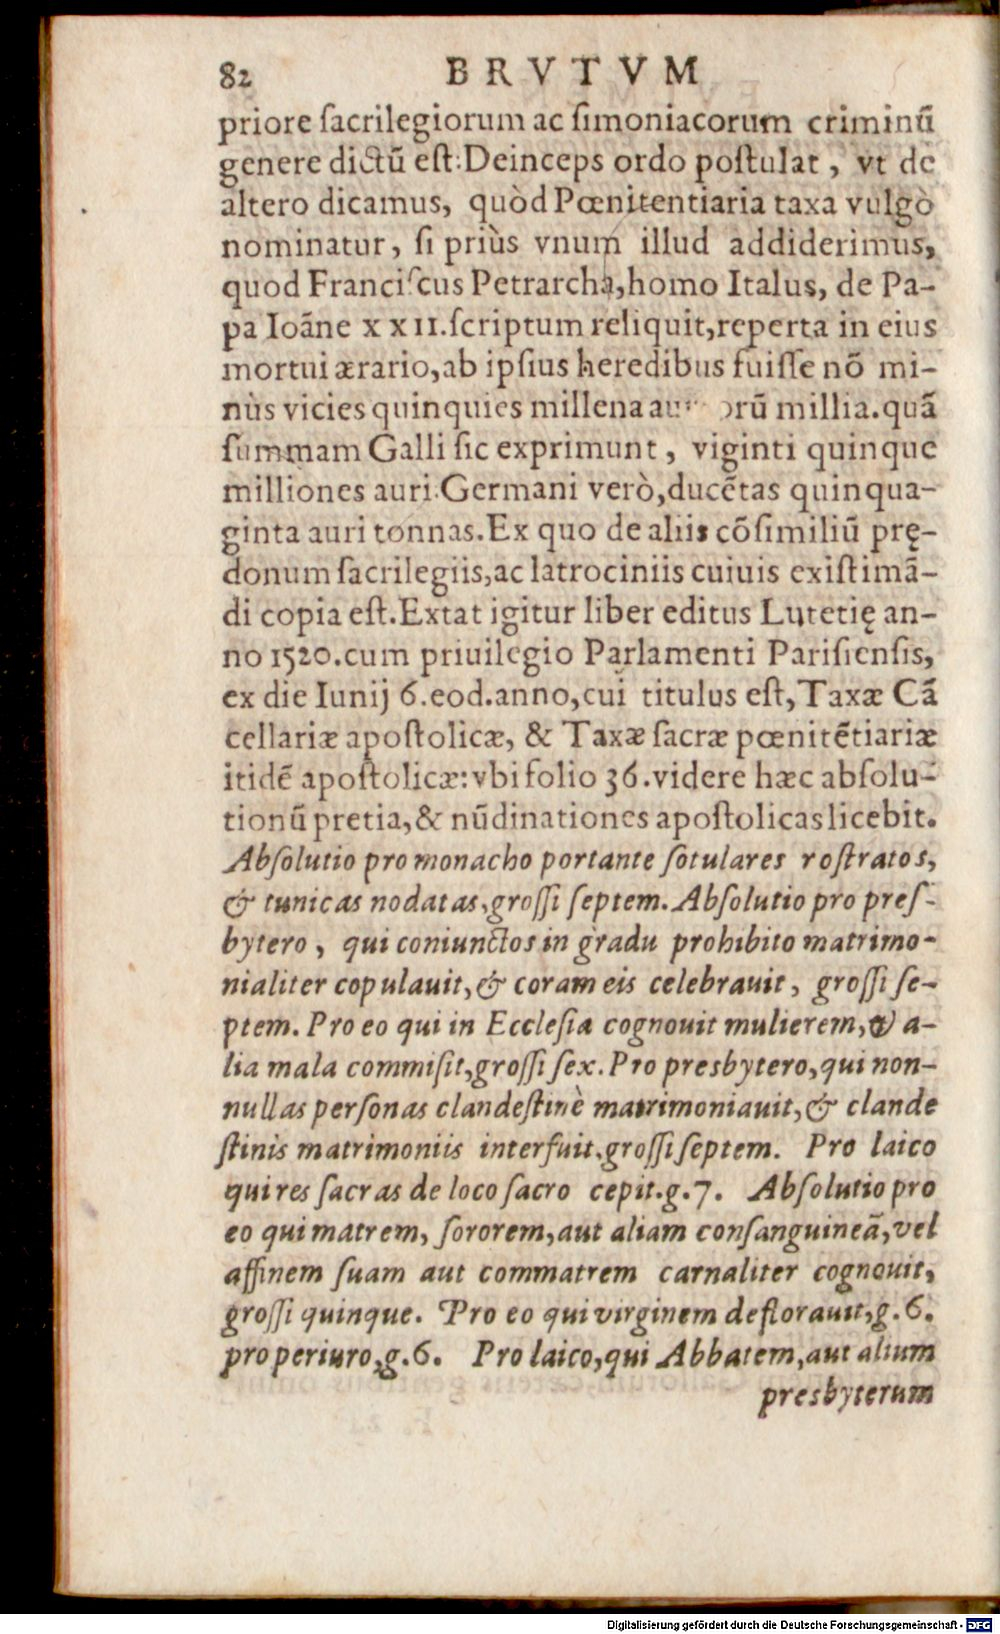 82 BRVTVM
priore ſacrilegiorum ac ſimoniacorum criminũ
genere dictũ eſt: Deinceps ordo poſtulat, vt de
altero dicamus, quòd Pœnitentiaria taxa vulgò
nominatur, ſi priùs vnum illud addiderimus,
quod Franciſcus Petrarcha, homo Italus, de Pa-
pa Ioãne XXII. ſcriptum reliquit, reperta in eius
mortui ærario, ab ipſius heredibus fuiſſe nõ mi-
nùs vicies quinquies millena millia. quã
ſummam Galli ſic exprimunt, viginti quinque
milliones auri. Germani verò, ducẽtas quinqua-
ginta auri tonnas. Ex quo de aliis cõſimiliũ prę-
donum ſacrilegiis, ac latrociniis cuiuis exiſtimã-
di copia eſt. Extat igitur liber editus Lutetię an-
no 1520. cum priuilegio Parlamenti Pariſienſis,
ex die Iunij 6. eod. anno, cui titulus eſt, Taxæ Cã
cellariæ apoſtolicæ, & Taxæ ſacræ pœnitẽtiariæ
itidẽ apoſtolicæ: vbi folio 36. videre hæc abſolu-
tionũ pretia, & nũdinationes apoſtolicas licebit.
Abſolutio pro monacho portante ſotulares roſtratos,
& tunicas nodatas, groſſi ſeptem. Abſolutio pro preſ-
bytero, qui coniunctos in gradu prohibito matrimo-
nialiter copulauit, & coram eis celebrauit, groſſi ſe-
ptem. Pro eo qui in Eccleſia cognouit mulierem, & a-
lia mala commiſit, groſſi ſex. Pro presbytero, qui non-
nullas perſonas clandeſtinè matrimoniauit, & clande
ſtinis matrimoniis interfuit, groſſi ſeptem. Pro laico
qui res ſacras de loco ſacro cepit. g. 7. Abſolutio pro
eo qui matrem, ſororem, aut aliam conſanguineã, vel
affinem ſuam aut commatrem carnaliter cognouit,
groſſi quinque. Pro eo qui virginem deflorauit, g. 6.
pro periuro, g. 6. Pro laico, qui Abbatem, aut alium
presbyterum
Digitalisierung gefördert durch die Deutsche Forschungsgemeinschaft - DFG